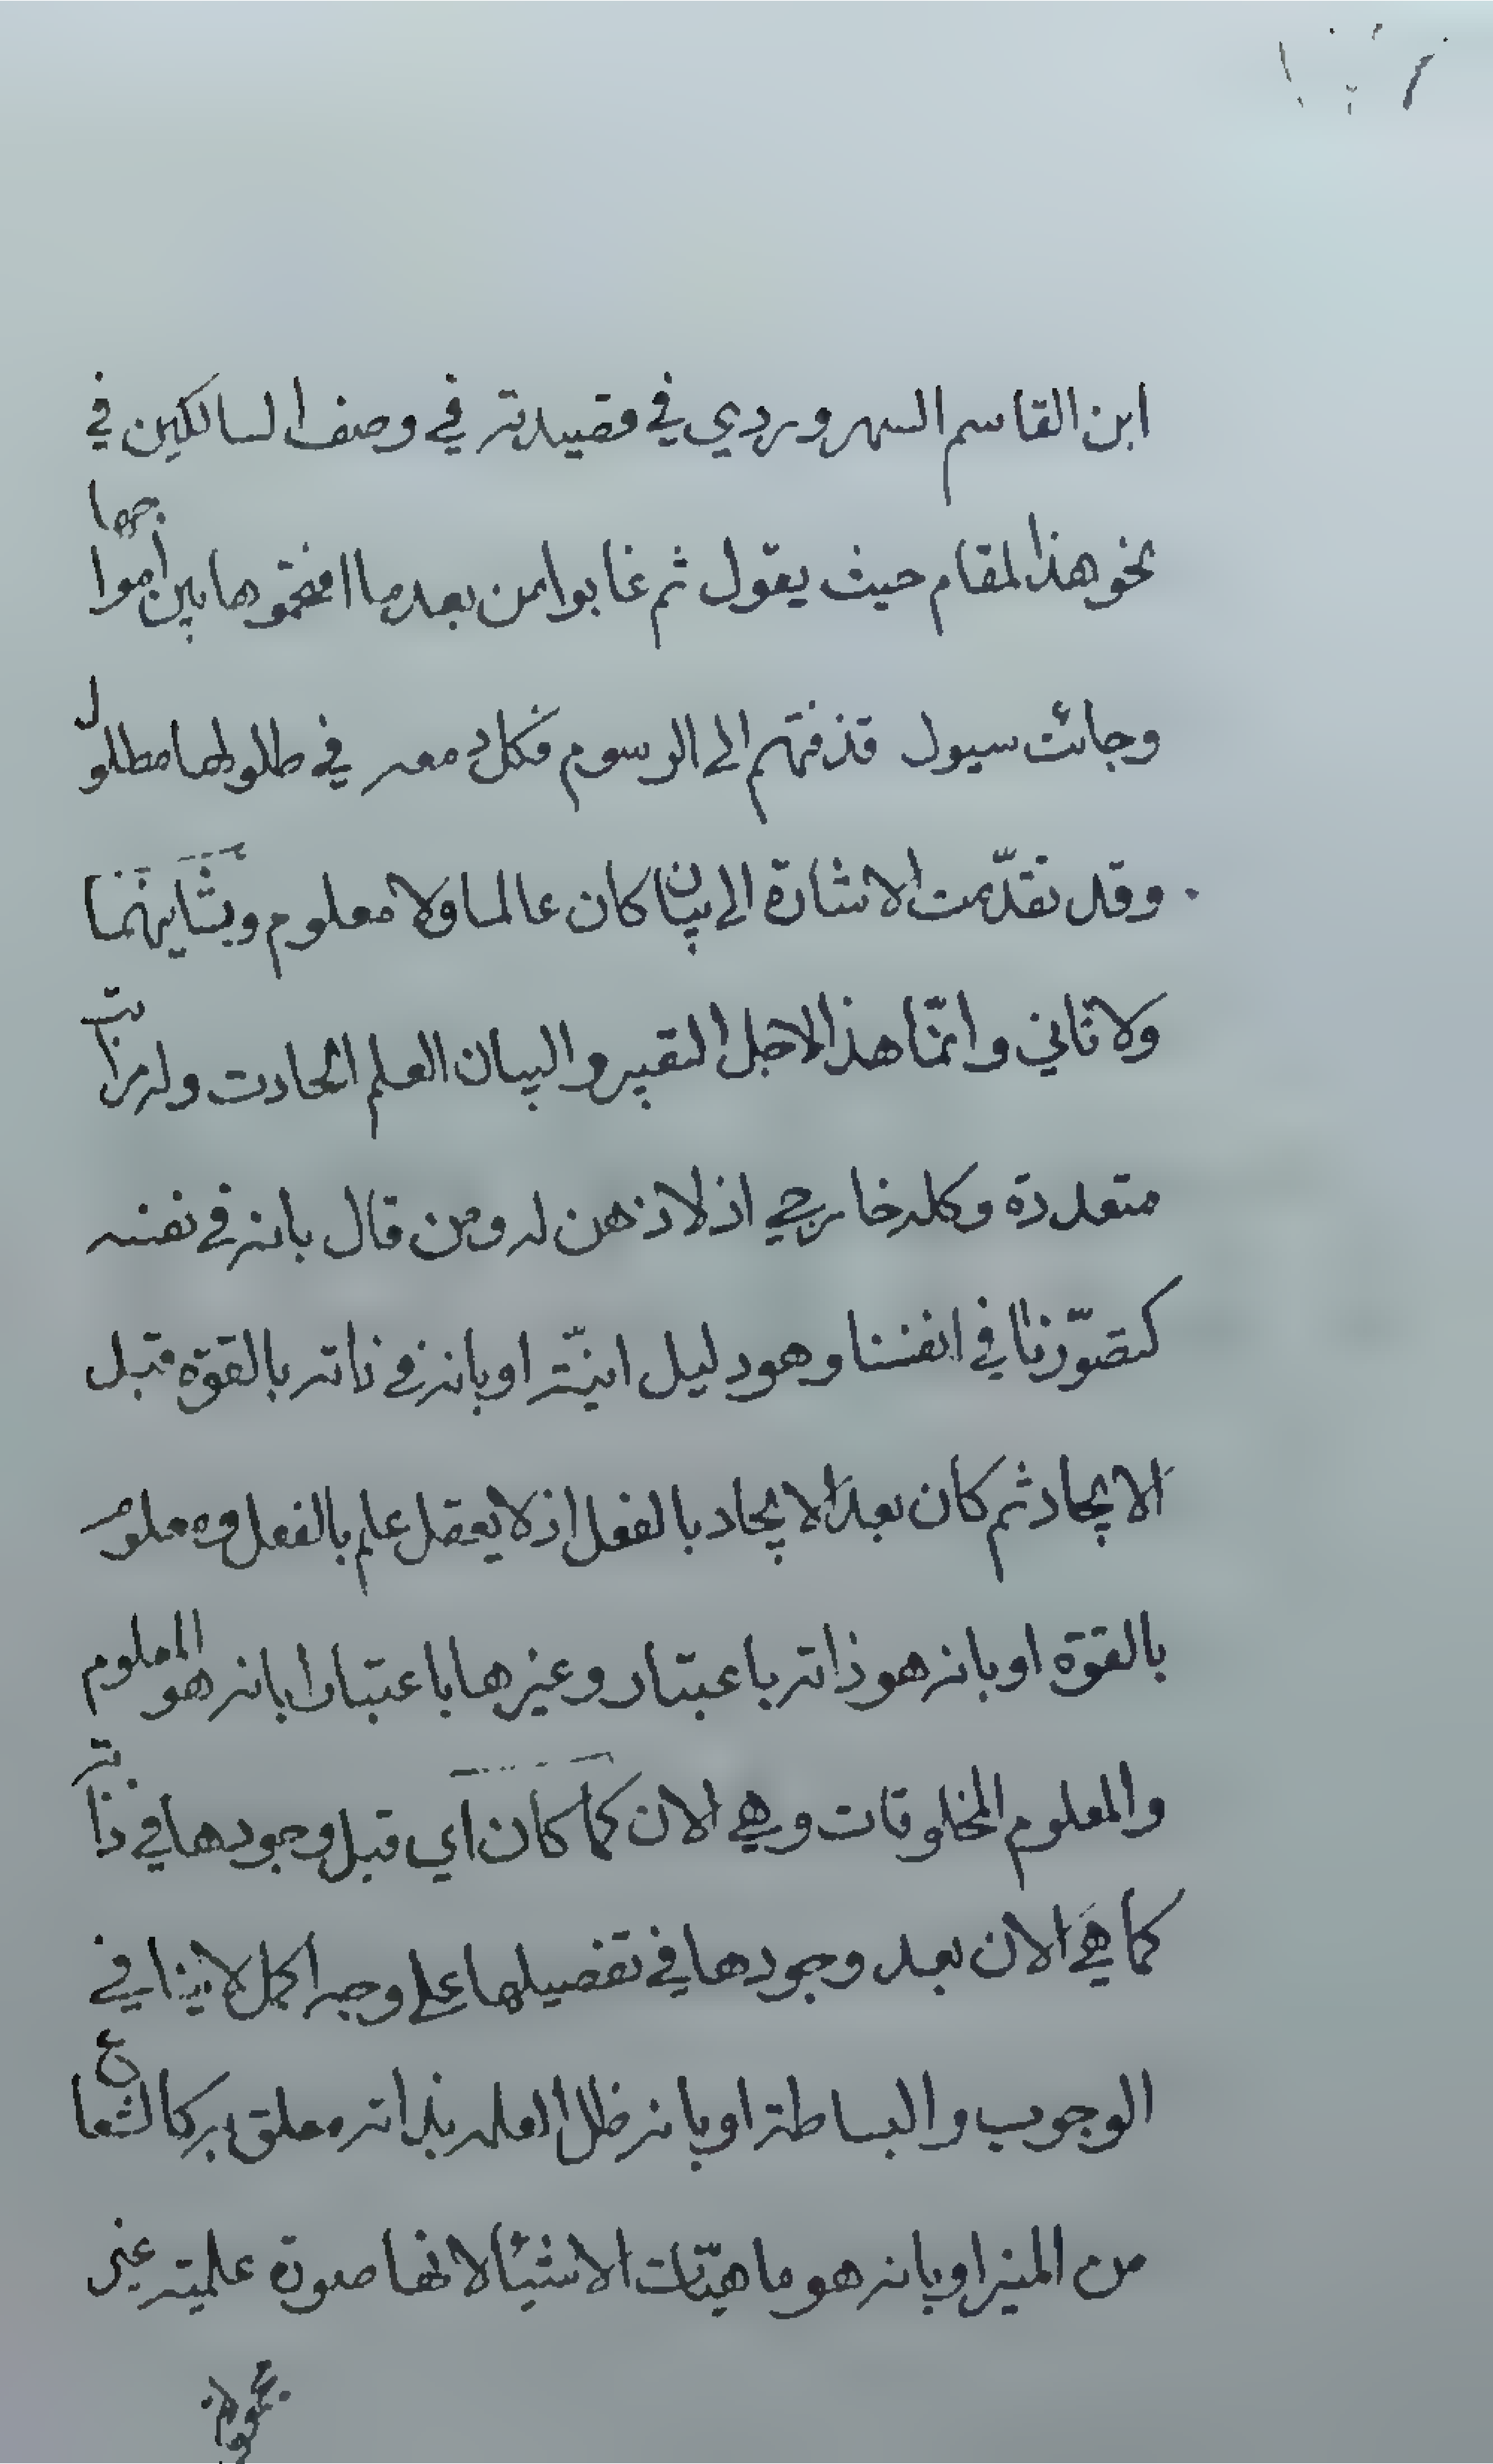 ابن القاسم السهروردي في قصيدته في وصف السالكين في
نحو هذا لمقام حيث يقول ثم غابوا من بعد ما اقتحموها بين امواجها
وجائت سيول قذفتهم الى الرسوم فكل دمعه في طلولها مطلول
وقد تقدّمت الاشارة الى بيان كان عالما ولا معلوم
ولا ثاني وانّما هذا لاجل التقييد والبيان العلم الحادث وله مراتب
متعددة وكله خارجي اذ لا ذهن له ومن قال بانه في نفسه
كتصوّرنا في انفسنا وهو دليل انيّته او بانه في ذاته بالقوّة قبل
الايجاد ثم كان بعد الايجاد بالفعل اذ لا يعقل علم بالفعل ومعلوم
بالقوّة او بانه هو ذاته باعتبار وغيرها باعتبار او بانه هو المعلوم
والمعلوم المخلوقات وهي الان كما كان اي قبل وجودها في ذاته
كما هي الان بعد وجودها في تفصيلها على وجه اكمل لا ينافي
الوجوب والبساطة او بانه ظل العلم بذاته معلق به كالشعاع
من المنير او بانه هو ماهيّات الاشئا لانها صورة علمية غير